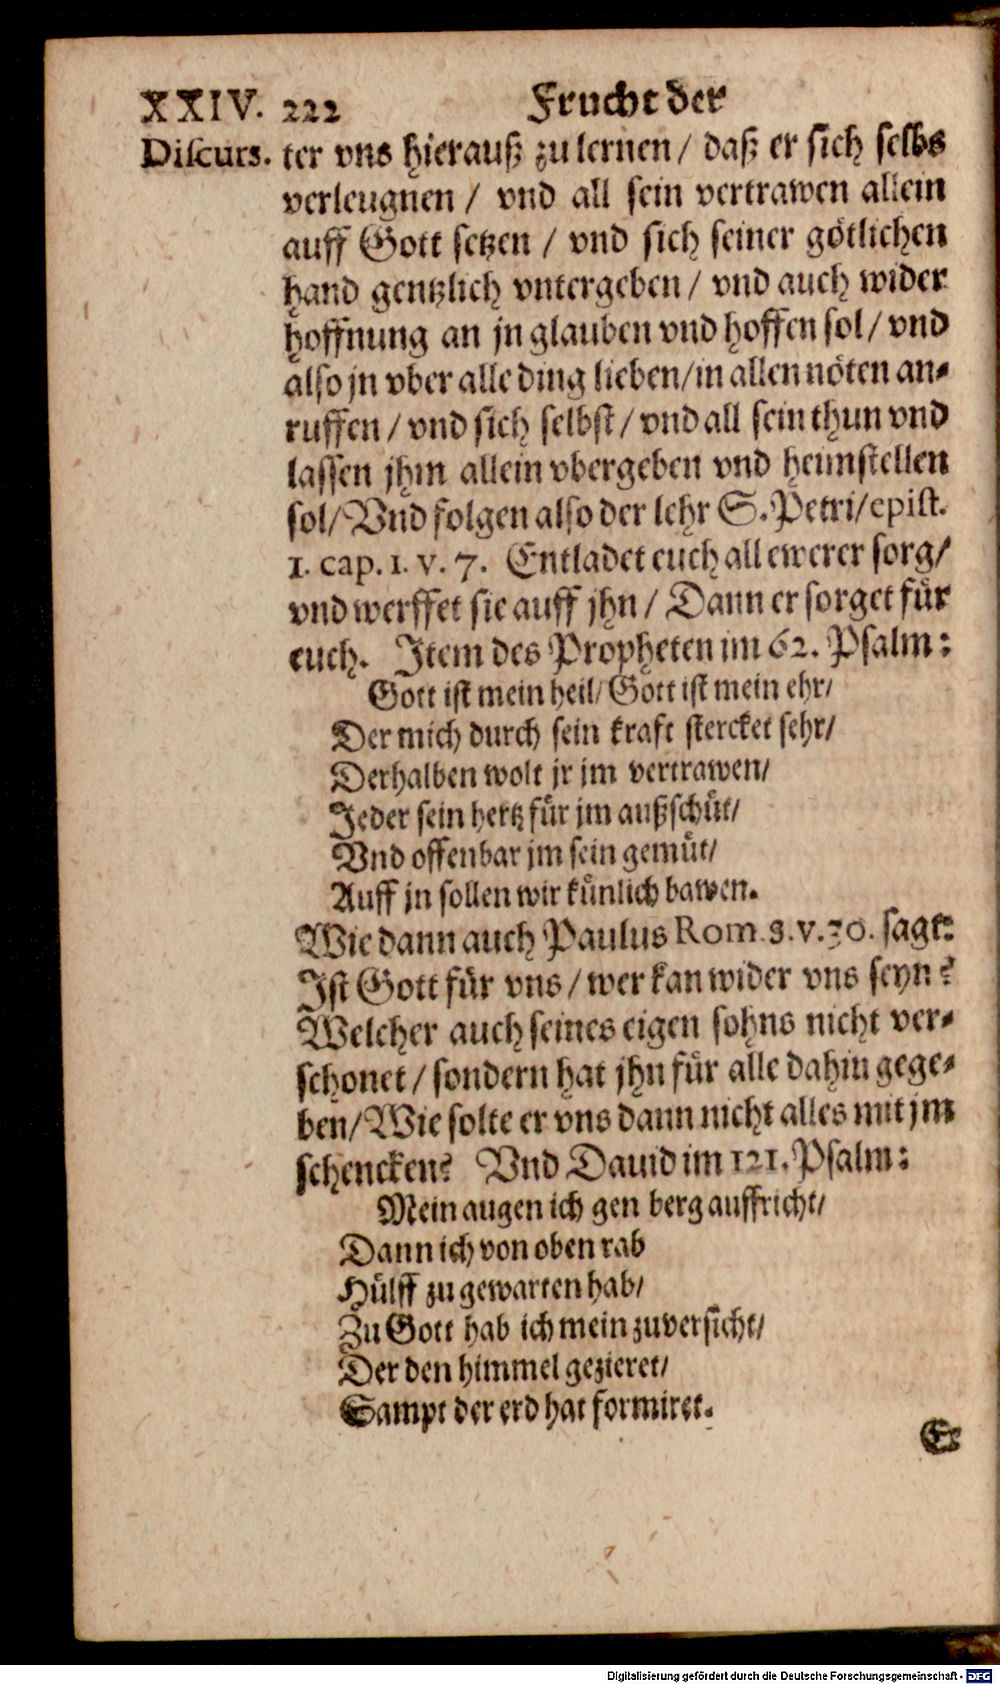 XXIV. 222 Frucht der
Discurs. ter vns hierauß zu lernen / daß er sich selbs
verleugnen / vnd all sein vertrawen allein
auff Gott setzen / vnd sich seiner götlichen
hand gentzlich vntergeben / vnd auch wider
hoffnung an jn glauben vnd hoffen sol / vnd
also jn vber alle ding lieben / in allen nöten an-
ruffen / vnd sich selbst / vnd all sein thun vnd
lassen jhm allein vbergeben vnd heimstellen
sol / Vnd folgen also der lehr S. Petri / epist.
1. cap. 1. v. 7. Entladet euch all ewerer sorg /
vnd werffet sie auff jhn / Dann er sorget für
euch. Item des Propheten im 62. Psalm:
Gott ist mein heil / Gott ist mein ehr /
Der mich durch sein kraft stercket sehr /
Derhalben wolt jr jm vertrawen /
Jeder sein hertz für jm außschüt /
Vnd offenbar jm sein gemüt /
Auff jn sollen wir künlich bawen.
Wie dann auch Paulus Rom. 8. v. 30. sagt:
Ist Gott für vns / wer kan wider vns seyn?
Welcher auch seines eigen sohns nicht ver-
schonet / sondern hat jhn für alle dahin gege-
ben / Wie solte er vns dann nicht alles mit jm
schencken? Vnd Dauid im 121. Psalm:
Mein augen ich gen berg auffricht /
Dann ich von oben rab
Hülff zu gewarten hab /
Zu Gott hab ich mein zuversicht /
Der den himmel gezieret /
Sampt der erd hat formiret.
Er
Digitalisierung gefördert durch die Deutsche Forschungsgemeinschaft - DFG